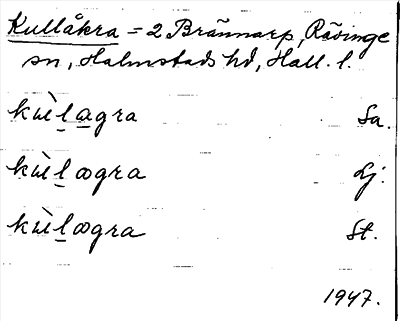 Kullåkra = 2 Brännarp, Rävinge
sn, Halmstads hd, Hall. l.
kùlagra Sa.
kùlagra Lj.
kùlagra St.
1947.